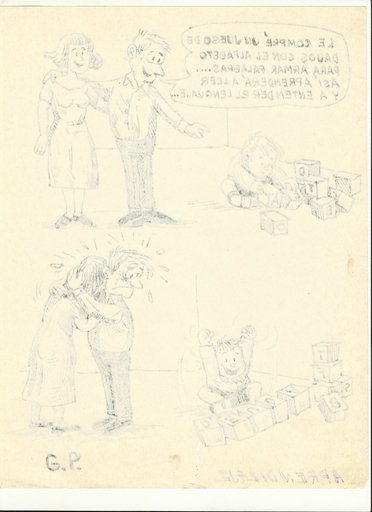 LE COMPRÉ UN JUEGO DE
DADOS CON EL ALFABETO
PARA ARMAR PALABRAS....
ASI APRENDERA A LEER
Y A ENTENDER EL LENGUAJE...
G.P.
APRENDIZAJE